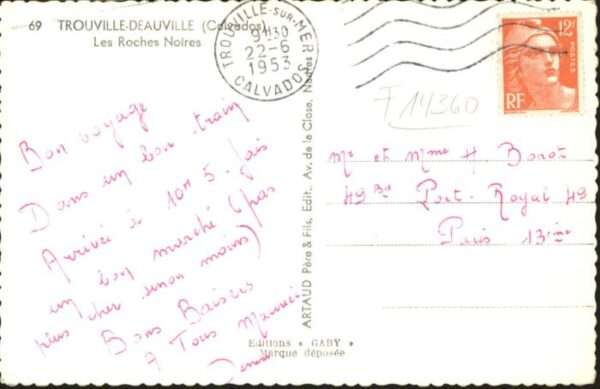 69 TROUVILLE-DEAUVILLE (Calvados)
Les Roches Noires
TROUVILLE-SUR-MER
9H30
22-6
1953
CALVADOS
12F
POSTES
RF
F14360
Bon voyage
Dans un bon train
Arrivée à 10H 5. fais
un bon marché (pas
plus cher sinon moins)
Bons Baisers
A Tous
ARTAUD Père & Fils, Edit., Av. de la Close, Nantes
Mr et Mme H
49 Bd Port-Royal 49
Paris 13ème
Editions • GABY •
Marque déposée